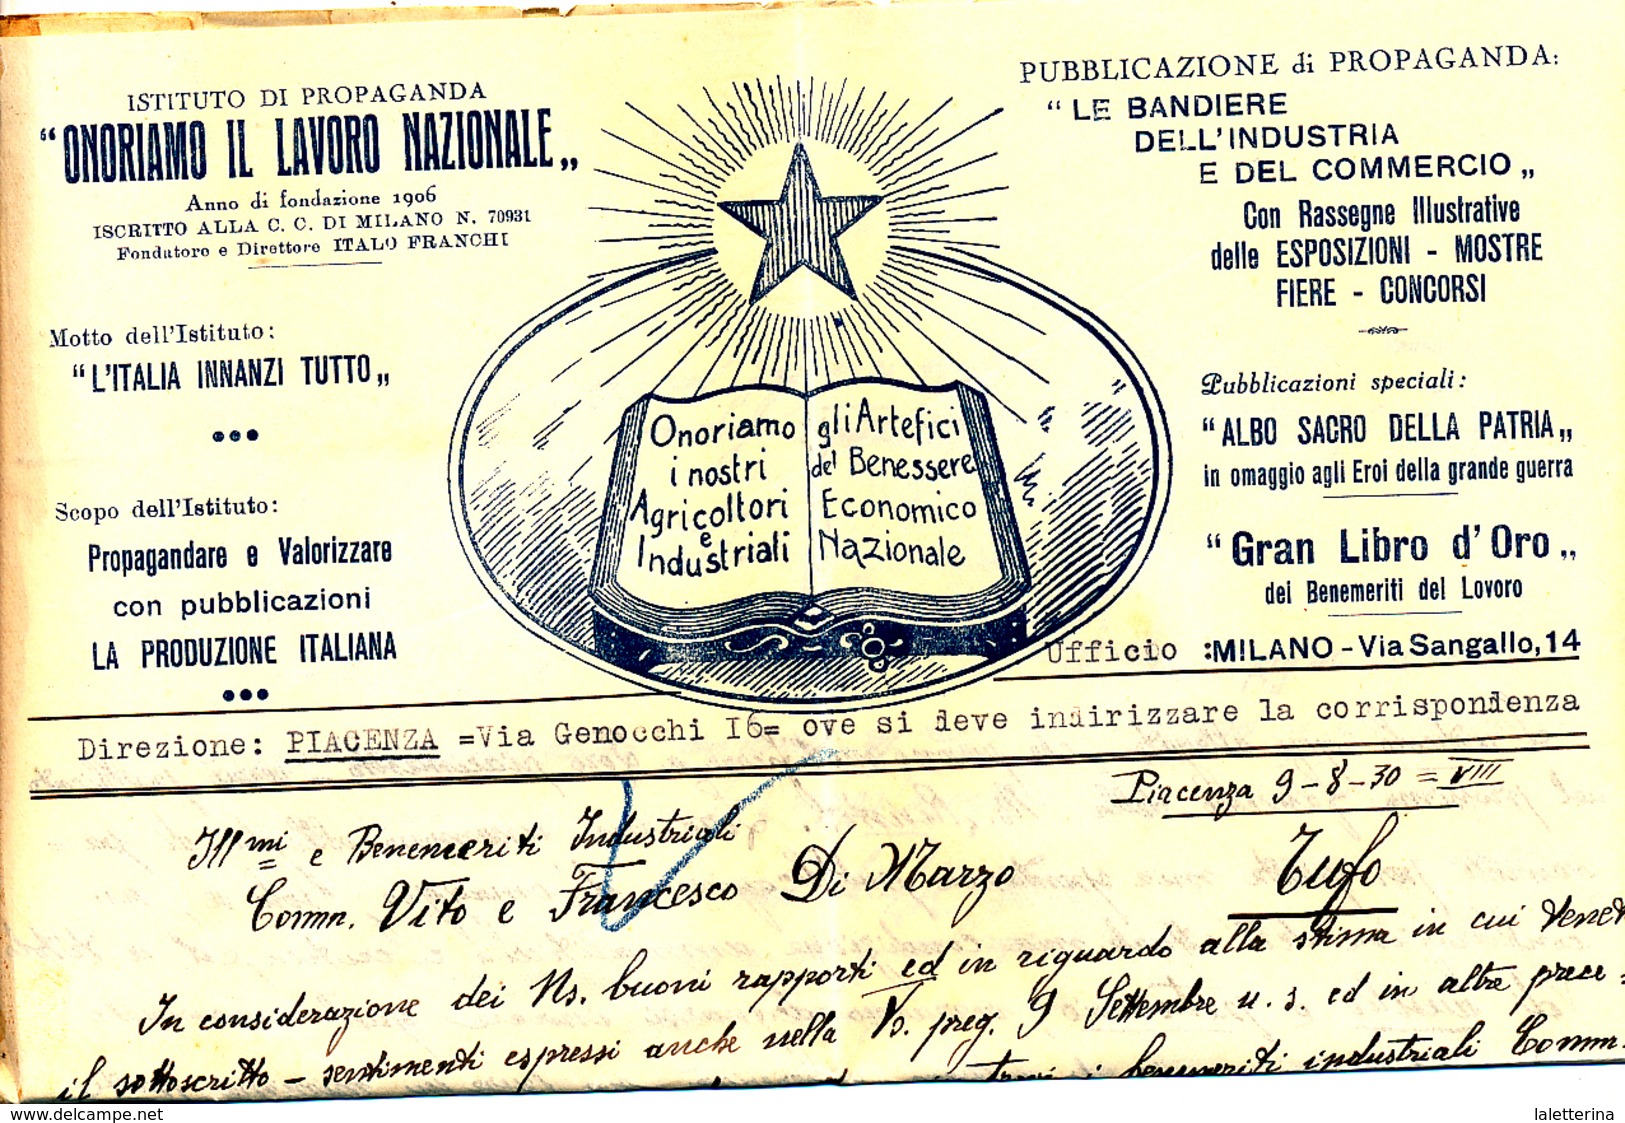 ISTITUTO DI PROPAGANDA
"ONORIAMO IL LAVORO NAZIONALE„
Anno di fondazione 1906
ISCRITTO ALLA C. C. DI MILANO N. 70931
Fondatore e Direttore ITALO FRANCHI
Motto dell'Istituto:
"L'ITALIA INNANZI TUTTO„
Scopo dell'Istituto:
Propagandare e Valorizzare
con pubblicazioni
LA PRODUZIONE ITALIANA
Onoriamo
i nostri
Agricoltori
e
Industriali
gli Artefici
del Benessere
Economico
Nazionale
PUBBLICAZIONE di PROPAGANDA:
"LE BANDIERE
DELL'INDUSTRIA
E DEL COMMERCIO„
Con Rassegne Illustrative
delle ESPOSIZIONI - MOSTRE
FIERE - CONCORSI
Pubblicazioni speciali:
"ALBO SACRO DELLA PATRIA„
in omaggio agli Eroi della grande guerra
"Gran Libro d'Oro„
dei Benemeriti del Lovoro
Ufficio :MILANO - Via Sangallo, 14
Direzione: PIACENZA =Via Genocchi I6= ove si deve indirizzare la corrispondenza
Piacenza 9-8-30=VIII
Ill mi e Benemeriti Industriali
Comm. Vito e Francesco Di Marzo
Tufo
In considerazione dei Ns. buoni rapporti ed in riguardo alla stima in cui
il sottoscritto - sentimenti espressi anche nella Vs. preg. 9 Settembre u. s. ed in altre prece
i benemeriti industriali Comm.
delcampe.com
laletterina